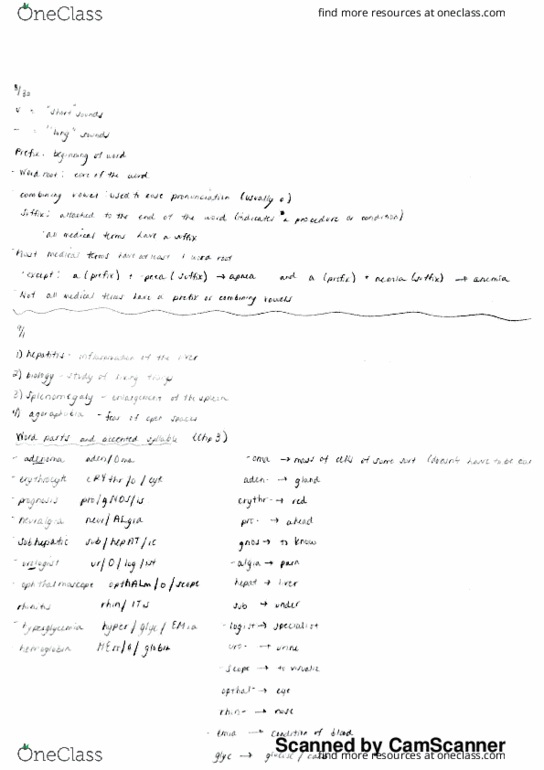 OneClass find more resources at oneclass.com
8/30
"short" sounds
"long" sounds
Prefix: beginning of word
- Word root: core of the word
combining vowel: used to ease pronunciation (usually o)
Suffix: attached to the end of the word (indicates a procedure or condition)
all medical terms have a suffix
Most medical terms have at least 1 word root
except: a (prefix) + -pnea (suffix) → apnea and a (prefix) + nemia (suffix) → anemia
Not all medical terms have a prefix or combining vowels
9/1
1) hepatitis - inflammation of the liver
2) biology - study of living things
3) Splenomegaly - enlargement of the spleen
4) agoraphobia - fear of open spaces
Word parts and accented syllable (Chp 3)
- adenoma aden/Oma
- erythrocyte eRYthr/o/cyte
- prognosis pro/gNOS/is
- neuralgia neur/ALgia
- subhepatic sub/hepAT/ic
- urologist ur/O/log/ist
- ophthalmoscope opthALm/o/scope
rhinitis rhin/ITis
- hyperglycemia hyper/glyc/EMia
- hemoglobin HEm/o/globin
- oma → mass of cells of some sort (doesn't have to be
aden- → gland
erythr- → red
pro- → ahead
gnos → to know
- algia → pain
hepat → liver
sub → under
- logist → specialist
uro- → urine
- scope → to visualize
opthal- → eye
rhin- → nose
- emia → condition of blood
glyc →
Scanned by CamScanner
OneClass find more resources at oneclass.com